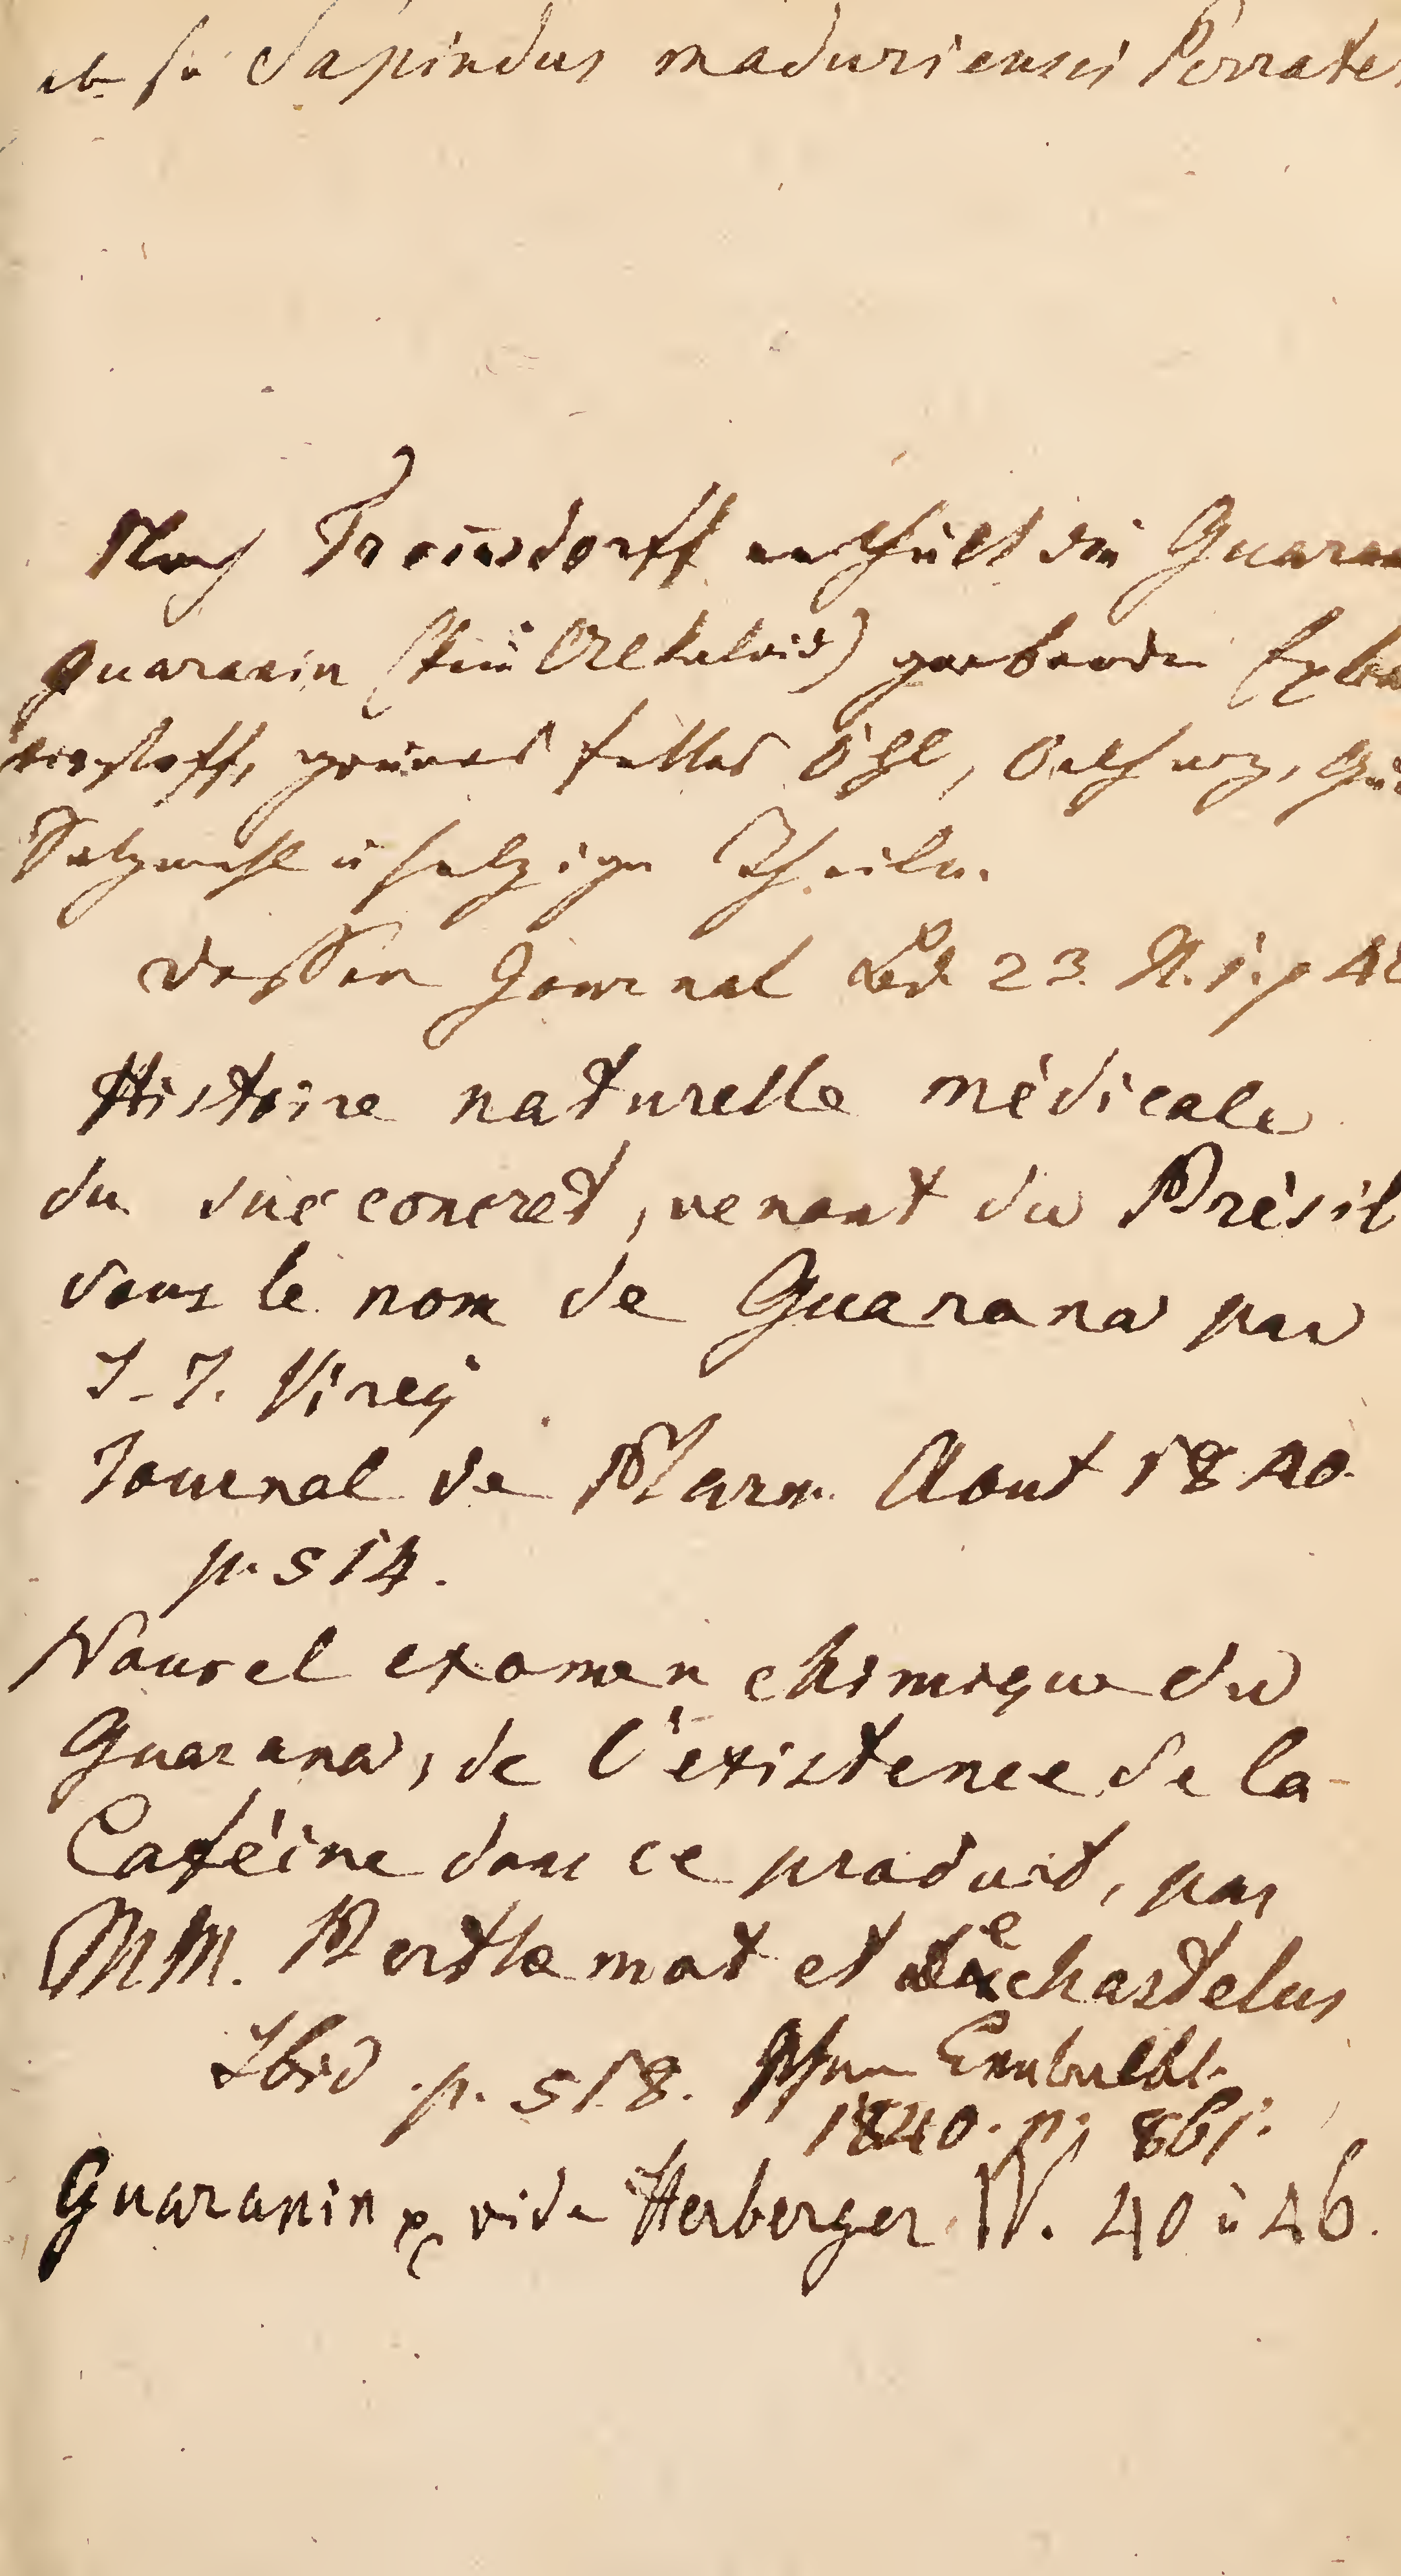 Sapindus maduriensis Perrotet
Nach Tromsdorff enthält die Guarana
Guaranin (kein Alkaloid) gerbenden Extra
tivstoff, grünes fettes Öhl, Oelharz, Gu
Satzmehl u salzige Theile.
dessen Journal Bd 23. St. 1. p 42
Histoire naturelle médicale
du suc concret, venant du Brésil
sous le nom de Guarana par
J-J. Virey
Journal de Pharm. Aout 1840.
p. 514.
Nouvel examen chimique du
Guarana, de l'existence de la
Caféine dans ce produit, par
MM. Berthemot et dechastelus
Ibid. p. 518. Pharm Centralbl.
1840. p. 861.
Guaranin vide Herberger. IV. 40 u 46.